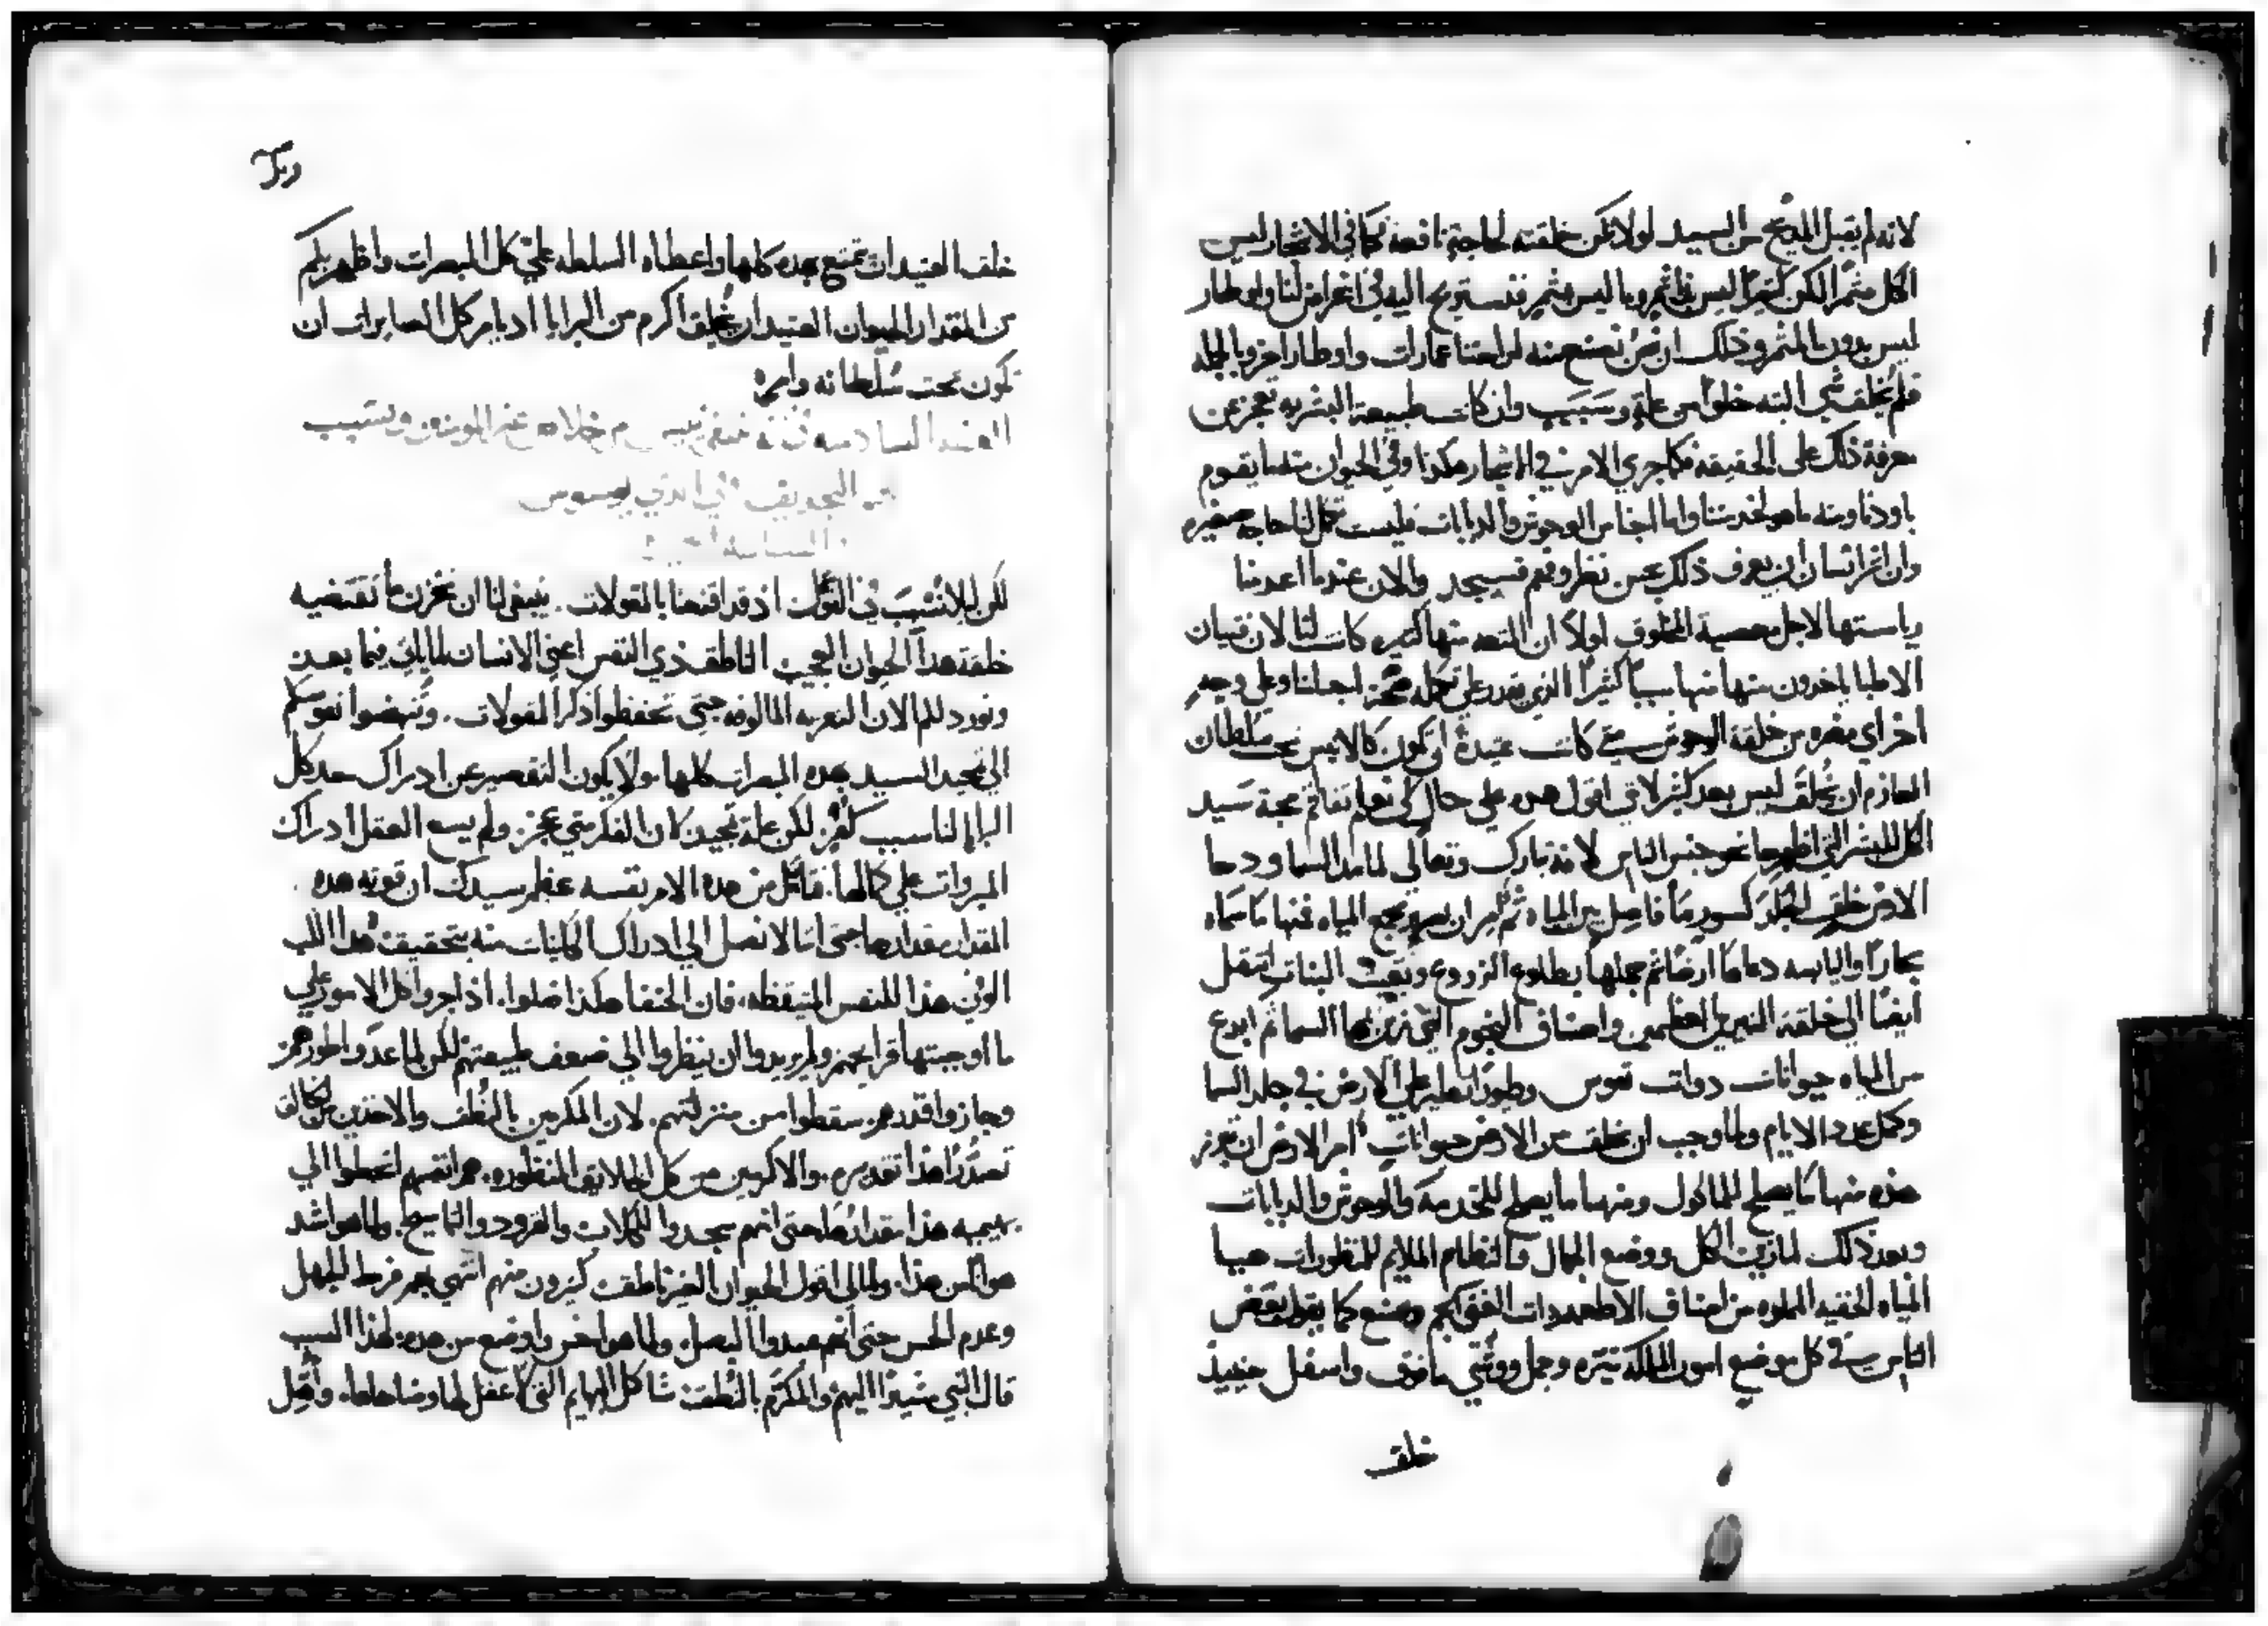 لانه لم يقبل المديح من السيد لولا تكن خلقته لحاجة نافعة كما في الاشجار ليس
الكل مثمرا لكن كثيرا ليس بمثمر وما ليس مثمر فنستريح اليه في اغراض لنا واوطار
ليس بدون المثمر وذلك ان نحن نصنع منه لراحتنا عمارات واوطار اخر وبالجمله
فلم يخلف شي البته خلوا من علة وسبب وان كانت طبيعة البشريه تعجز عن
معرفة ذلك على الحقيقه فكما جرى الامر في الاشجار هكذا وفي الحيوان منها يقوم
باودنا ومنه ما هو لخدمتنا واما اجناس الوحوش والدبابات فليست تكمل لنا حاجه صغيره
وان اثر انسان ان يعرف ذلك بحسن نظر وفهم فسيجد والان عندما اعدمنا
رياستها لاجل معصية المخلوق اولا ان النفعه منها كثيره كانت لنا لان فتيان
الاطبا ياخدون منها سببا كثيرا الذي يقدر على صحة اجسادنا وعلى وجه
اخر اي مضره من خلقة الوحوش متى كانت عتيدة ان تكون كالانيس تحت سلطان
العازم ان يخلق ليس بعد كثير لاني اقول هذه على حال لكي تعلم تفاقم محبة سيد
الكل للبشر التي اظهرها نحو جنس الناس لانه تبارك وتعالى لما مد السما ودحا
الارض خلق الجلد كسور ما فاصل بين المياه ثم امر ان يصير تجمع المياه فمنها ما سماه
بحارا واليابسه دعاها ارضا ثم جملها بطلوع الزروع ونبت النبات انتقل
ايضا الى خلقة النيرين العظيمين واصناف النجوم التي زين بها السما ثم ابدع
من المياه حيوانات دوات نفوس وطيورا تطير على الارض في جلد السما
وكمل عدد الايام ولما وجب ان تخلف من الارض حيوانات امر الارض ان تبرز
هذه منها ما يصلح للماكول ومنها ما يصلح للخدمة والوحوش والدبابات
وبعد ذلك لما زين الكل ووضع الجمال والنظام الملايم للمنظورات هيا
الناس في كل موضع امور المملكة نيره وجمل ووشي ما فوق واسفل حينيذ
خلق
خلف العتيد ان يتمتع بهده كلها واعطاه السلطه علي كل المبصرات واظهر بكم
من المقدار الحيوان العتيد ان يخلق اكرم من البرايا اد يامر كل الصايرات ان
تكون تحت سلطانه وامره
لكن ليلا نسهب في القول اذ قد اقنعنا بالمقولات . ينبغي لنا ان نخزن ما تقتضيه
خلقة هدا الحيوان العجيب الناطق ذي النفس اعني الانسان لما ياتي فيما بعد
ونورد لكم الان التعزيه المالوفه حتي تحفظوا ذكر المقولات . وتنهضوا نفوسكم
الي تمجيد السيد بهده المبصرات كلها ولا يكون التقصير عن ادراك حد كل
البرايا لنا سبب كفر لكن علة تمجيد لان الفكر متي عجز ولم يسع العقل ادراك
المبروات علي كمالها . فتامل من هده الامر نفسه عظم سيدك ان قوته هده
المقدار مقدارها حتى اننا لا نصل الي ادراك الكليات منه بتحقيق هدا اللب
الوثن هذا للنفس المتيقظه . فان الحنفا هكذا ضلوا . اذ اجروا كل الامور علي
ما اوجبتها قرايحهم ولم يريدوا ان ينظروا الي ضعف طبيعتهم لكن لما عدوا طورهم
وجازوا قدرهم سقطوا من منزلتهم . لان المكرمين بالنطق والاخذين من الخالق
تصدرا هذا تقديره . والاكرمين من كل الخلايق المنظوره . هم انفسهم انحطوا الي
بهيميه هذا مقدارها حتى انهم سجدوا للكلاب والقرود والتماسيح ولما هو اشد
هوانا من هذا . ولما لي اقول الحيوان الغير ناطق كثيرون منهم انتهي بهم فرط الجهل
وعدم الحس حتى انهم عبدوا البصل ولما هو اخس واوضع من هده . لهذا السبب
قال النبي مشيرا اليهم والمكرم بالنطق شاكل البهايم التي لا عقل لها وضاهاها . واقول